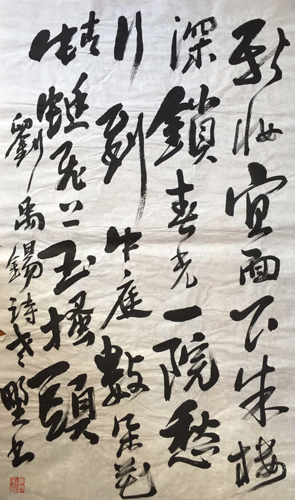 新妆宜面下朱楼
深鎖春光一院愁
行到中庭數朵花
蜻蜓飛上玉搔頭
劉禹錫詩